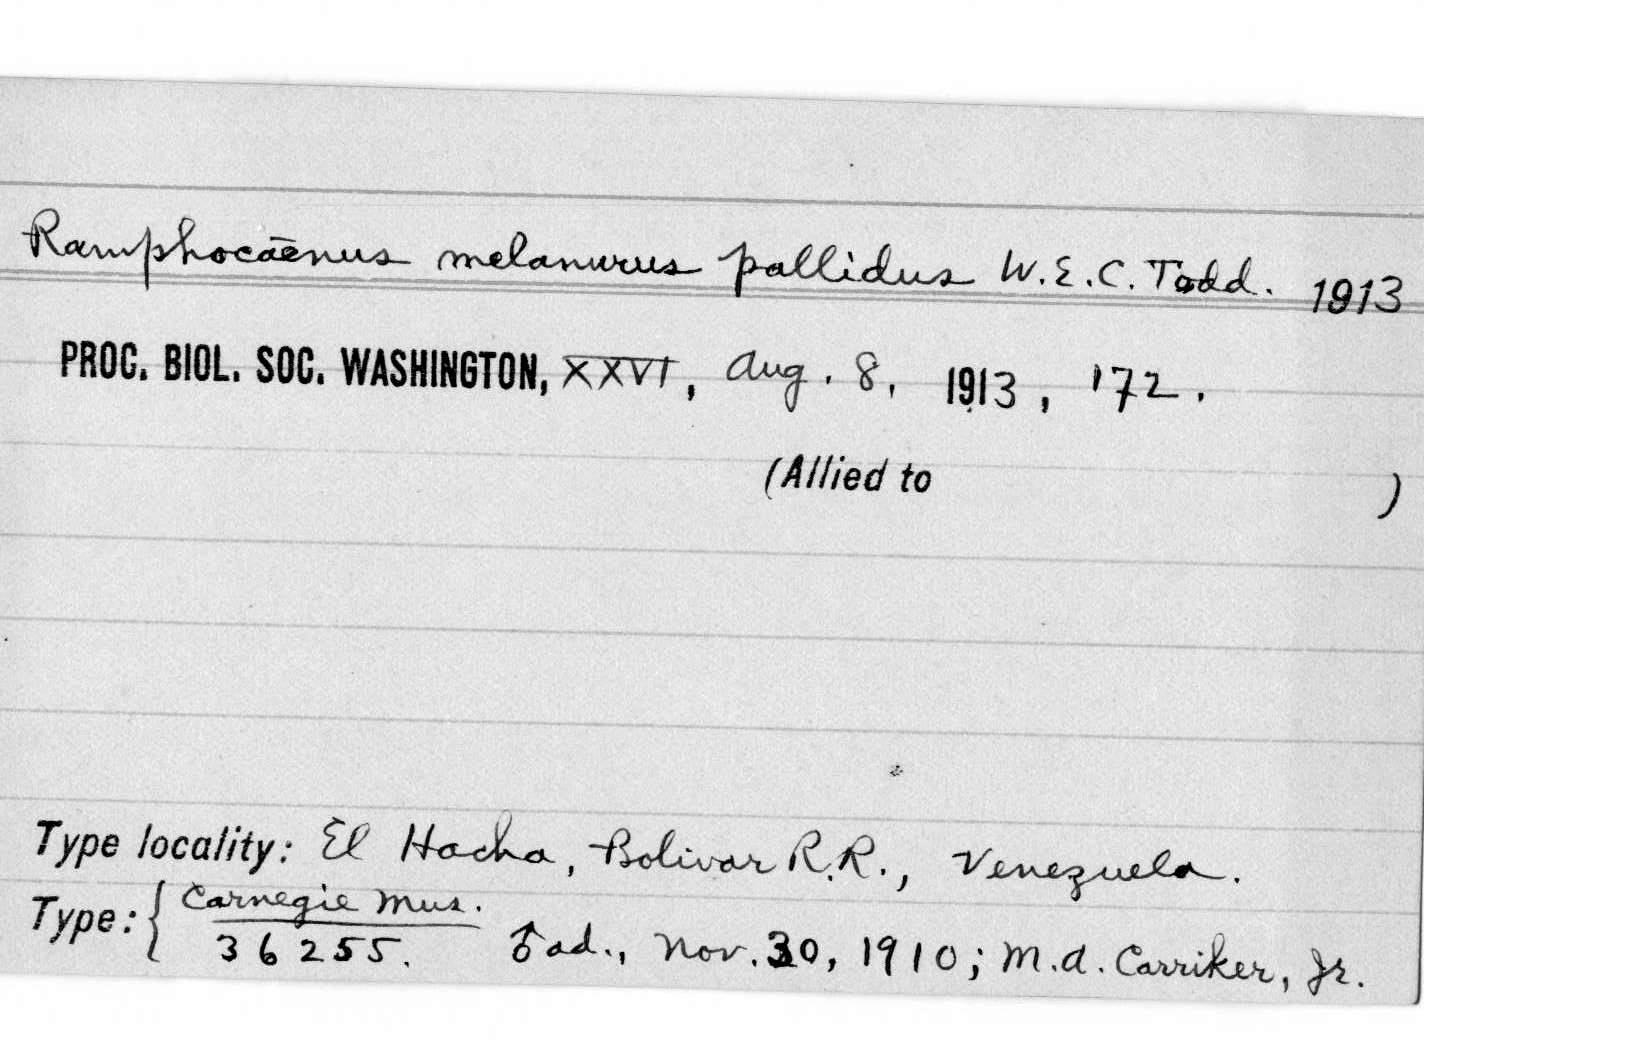 Ramphocaēnus melanurus pallidus W.E.C. Todd. 1913
PROC. BIOL. SOC. WASHINGTON, XXVI, Aug. 8, 1913, 172.
(Allied to )
Type locality: El Hacha, Bolivar R.R., Venezuela.
Type: { Carnegie Mus.
36255. ♂ ad., Nov. 30, 1910; M.A. Carriker, Jr.